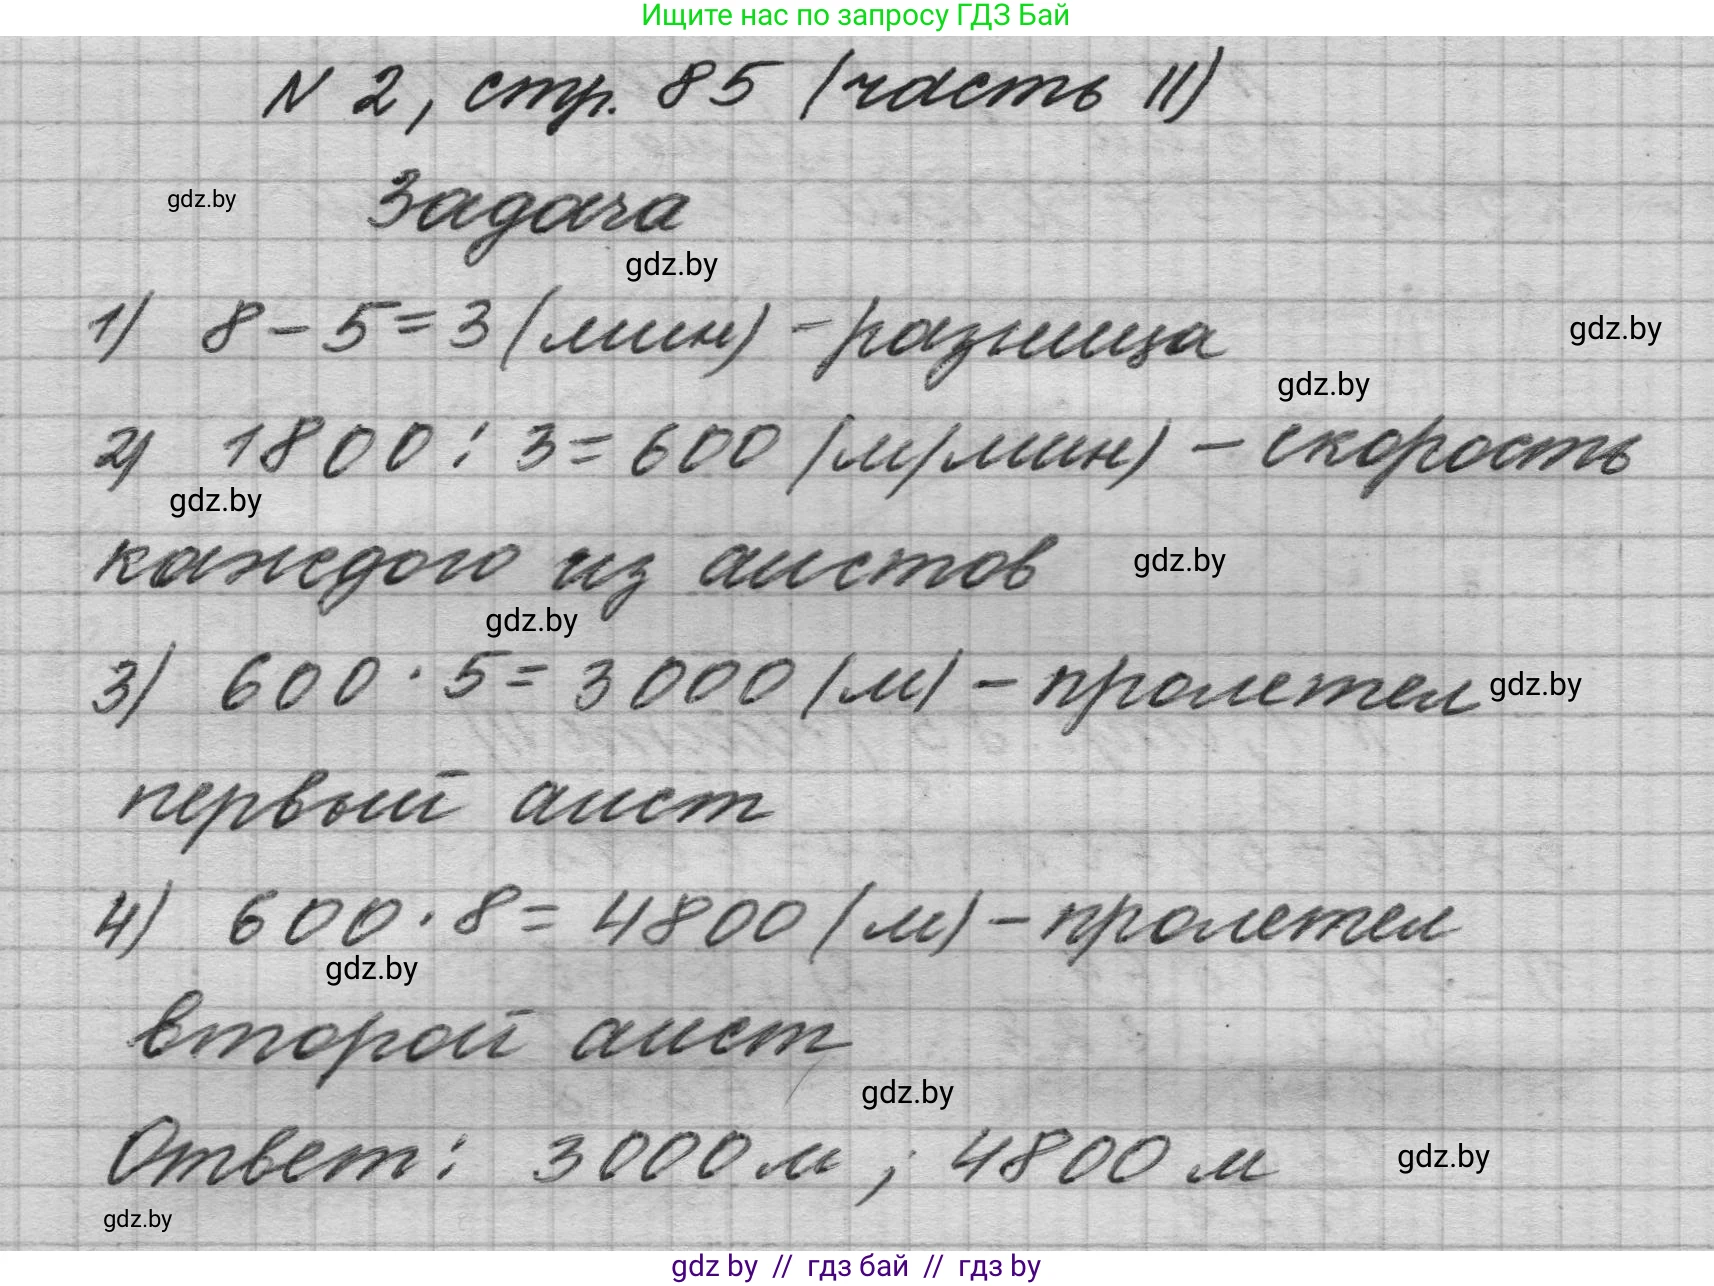 Ищите нас по запросу ГДЗ Бай
N 2, стр. 85 (часть II)
gdz.by
Задача
gdz.by
1) 8 - 5 = 3 (мин) - разница
gdz.by
gdz.by
2) 1800 : 3 = 600 (м/мин) - скорость
gdz.by
каждого из аистов
gdz.by
gdz.by
3) 600 · 5 = 3000 (м) - пролетел
gdz.by
первый аист
4) 600 · 8 = 4800 (м) - пролетел
gdz.by
второй аист
gdz.by
Ответ: 3000 м ; 4800 м
gdz.by
gdz.by
gdz by // гдз бай // гдз by